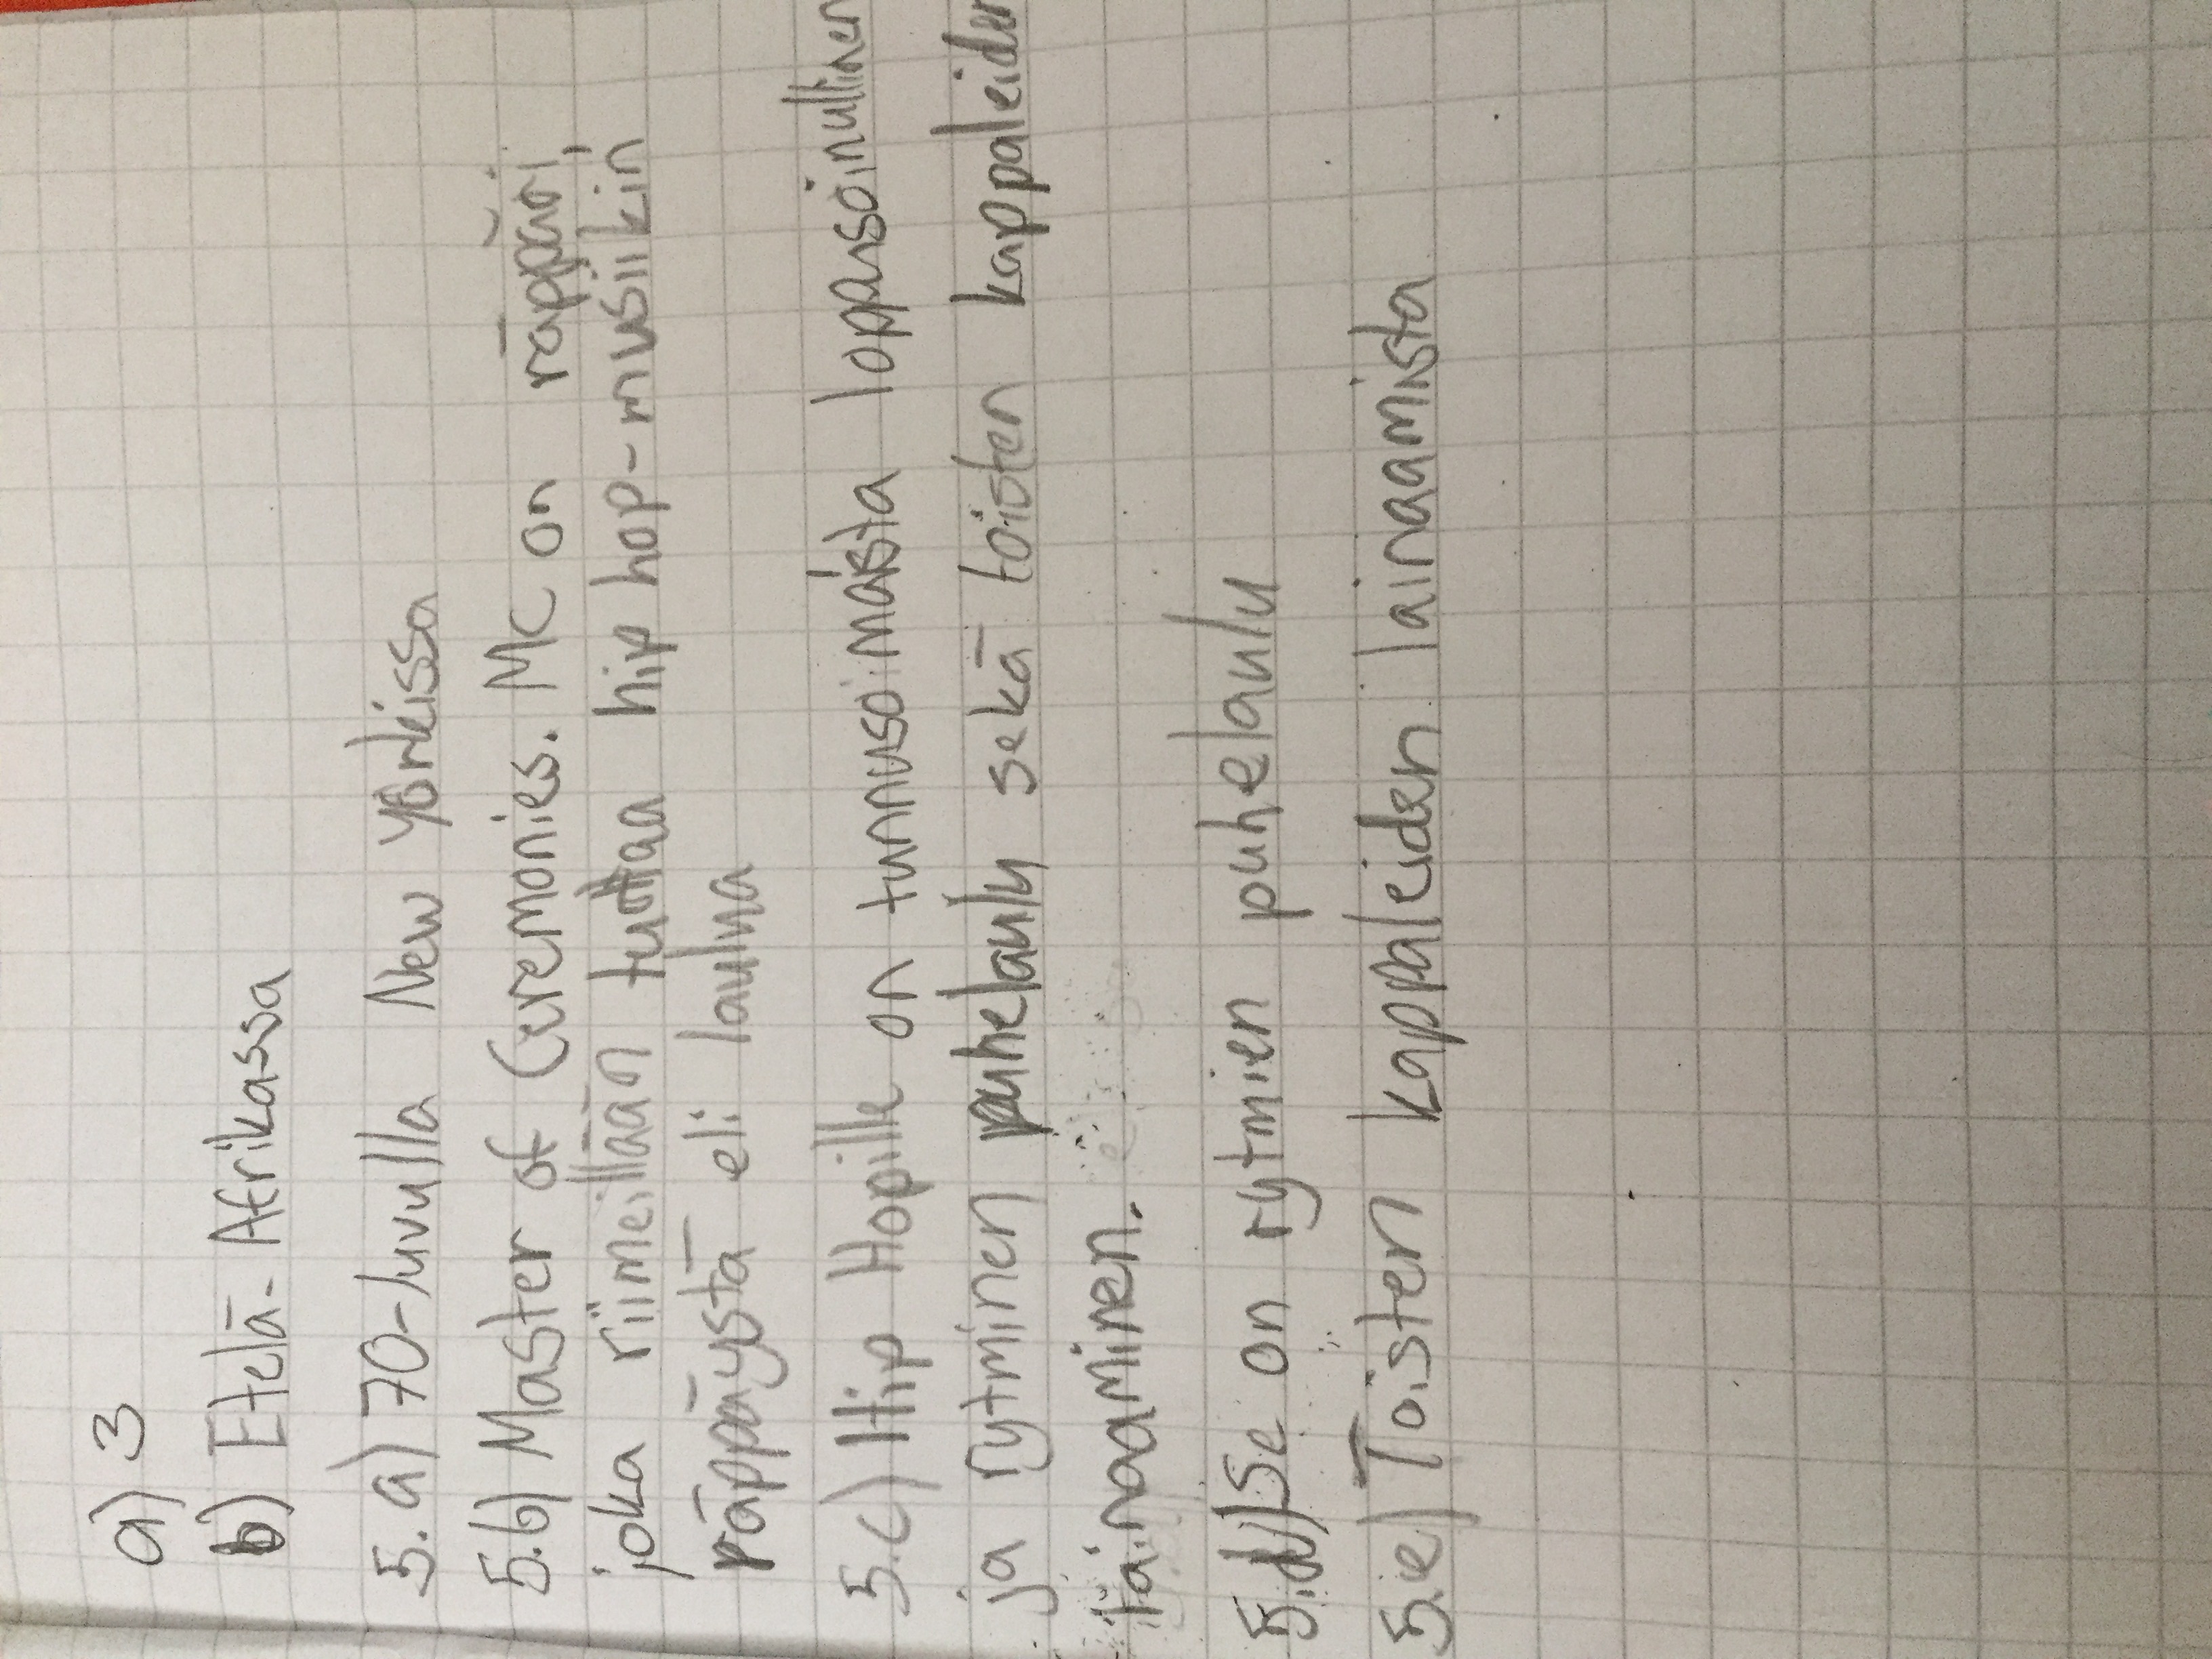 a) 3
b) Etelä-Afrikassa
5.a) 70-luvulla New yorkissa
5.b) Master of Ceremonies. MC on räppäri,
joka riimeillään tuttaa hip hop-musiikin
räppäystä eli laulua
5.c) Hip Hopille on tunnusoimaista loppusoinullinen
ja rytminen puhelaulu sekä toisten kappaleiden
lainaaminen.
5.d) Se on rytmien puhelaulu
5.e) Toisten kappaleiden lainaamista